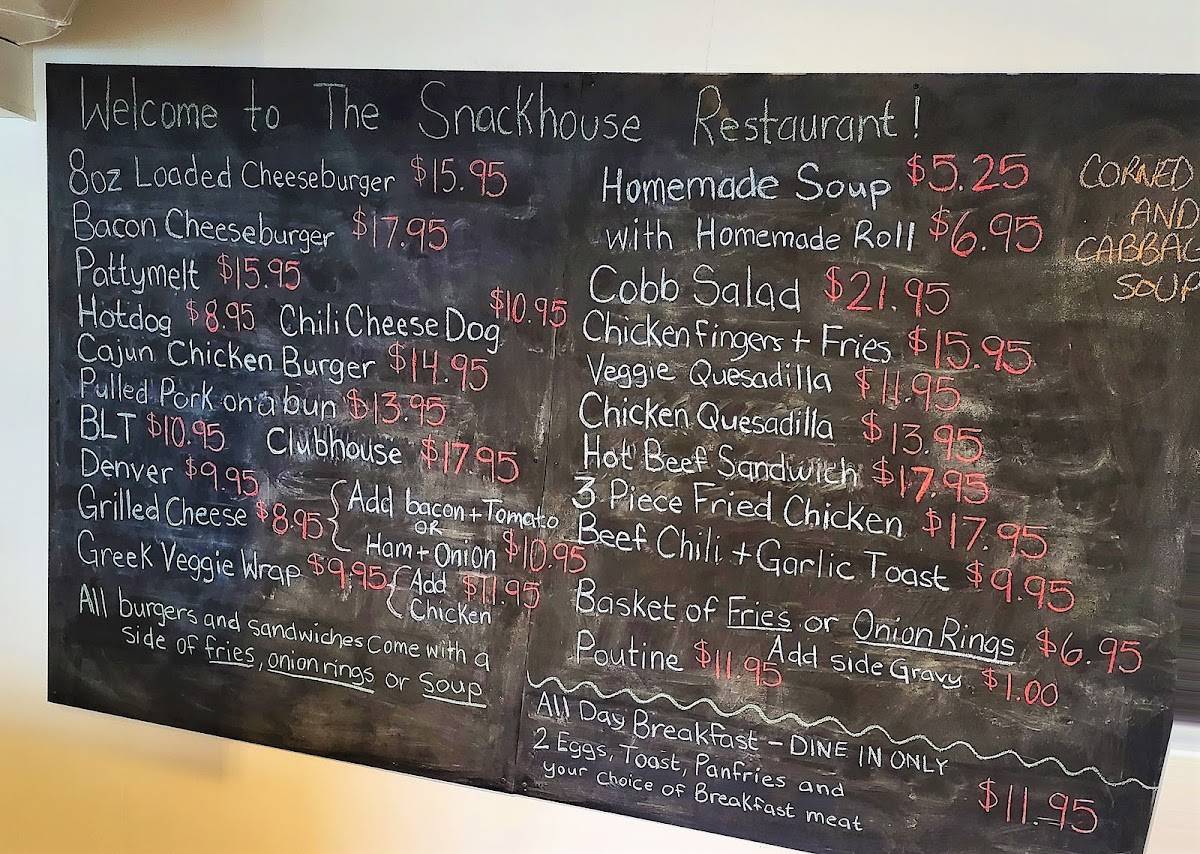 Welcome to The Snackhouse Restaurant!
8oz Loaded Cheeseburger $15.95
Bacon Cheeseburger $17.95
Pattymelt $15.95
Hotdog $8.95 Chili Cheese Dog $10.95
Cajun Chicken Burger $14.95
Pulled Pork on a bun $13.95
BLT $10.95 Clubhouse $17.95
Denver $9.95
Grilled Cheese $8.95 { Add bacon + Tomato
OR
Ham + Onion $10.95
Greek Veggie Wrap $9.95 { Add $11.95
Chicken
All burgers and sandwiches come with a
side of fries, onion rings or soup
Homemade Soup $5.25
with Homemade Roll $6.95
Cobb Salad $21.95
Chicken fingers + Fries $15.95
Veggie Quesadilla $11.95
Chicken Quesadilla $13.95
Hot Beef Sandwich $17.95
3 Piece Fried Chicken $17.95
Beef Chili + Garlic Toast $9.95
Basket of Fries or Onion Rings $6.95
Poutine $11.95 Add side Gravy $1.00
All Day Breakfast - DINE IN ONLY
2 Eggs, Toast, Panfries and
your choice of Breakfast meat $11.95
CORNED
AND
CABBAG
SOUP